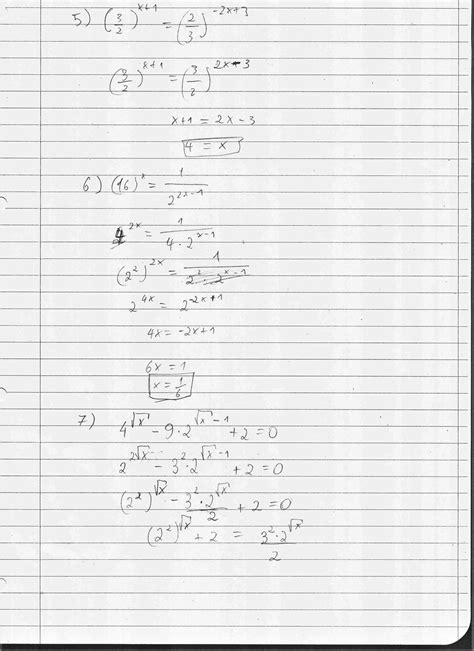 5) (3/2)^(x+1) = (2/3)^(-2x+3)
(3/2)^(x+1) = (3/2)^(2x-3)
x+1 = 2x-3
4 = x
6) (16)^x = 1/2^(2x-1)
4^(2x) = 1/(4·2^(x-1))
(2²)^(2x) = 1/(2²·2^(x-1))
2^(4x) = 2^(-2x+1)
4x = -2x+1
6x = 1
x = 1/6
7) 4^√x - 9·2^(√x-1) + 2 = 0
2^(2√x) - 3²·2^(√x-1) + 2 = 0
(2²)^√x - (3²·2^√x)/2 + 2 = 0
(2²)^√x + 2 = (3²·2^√x)/2